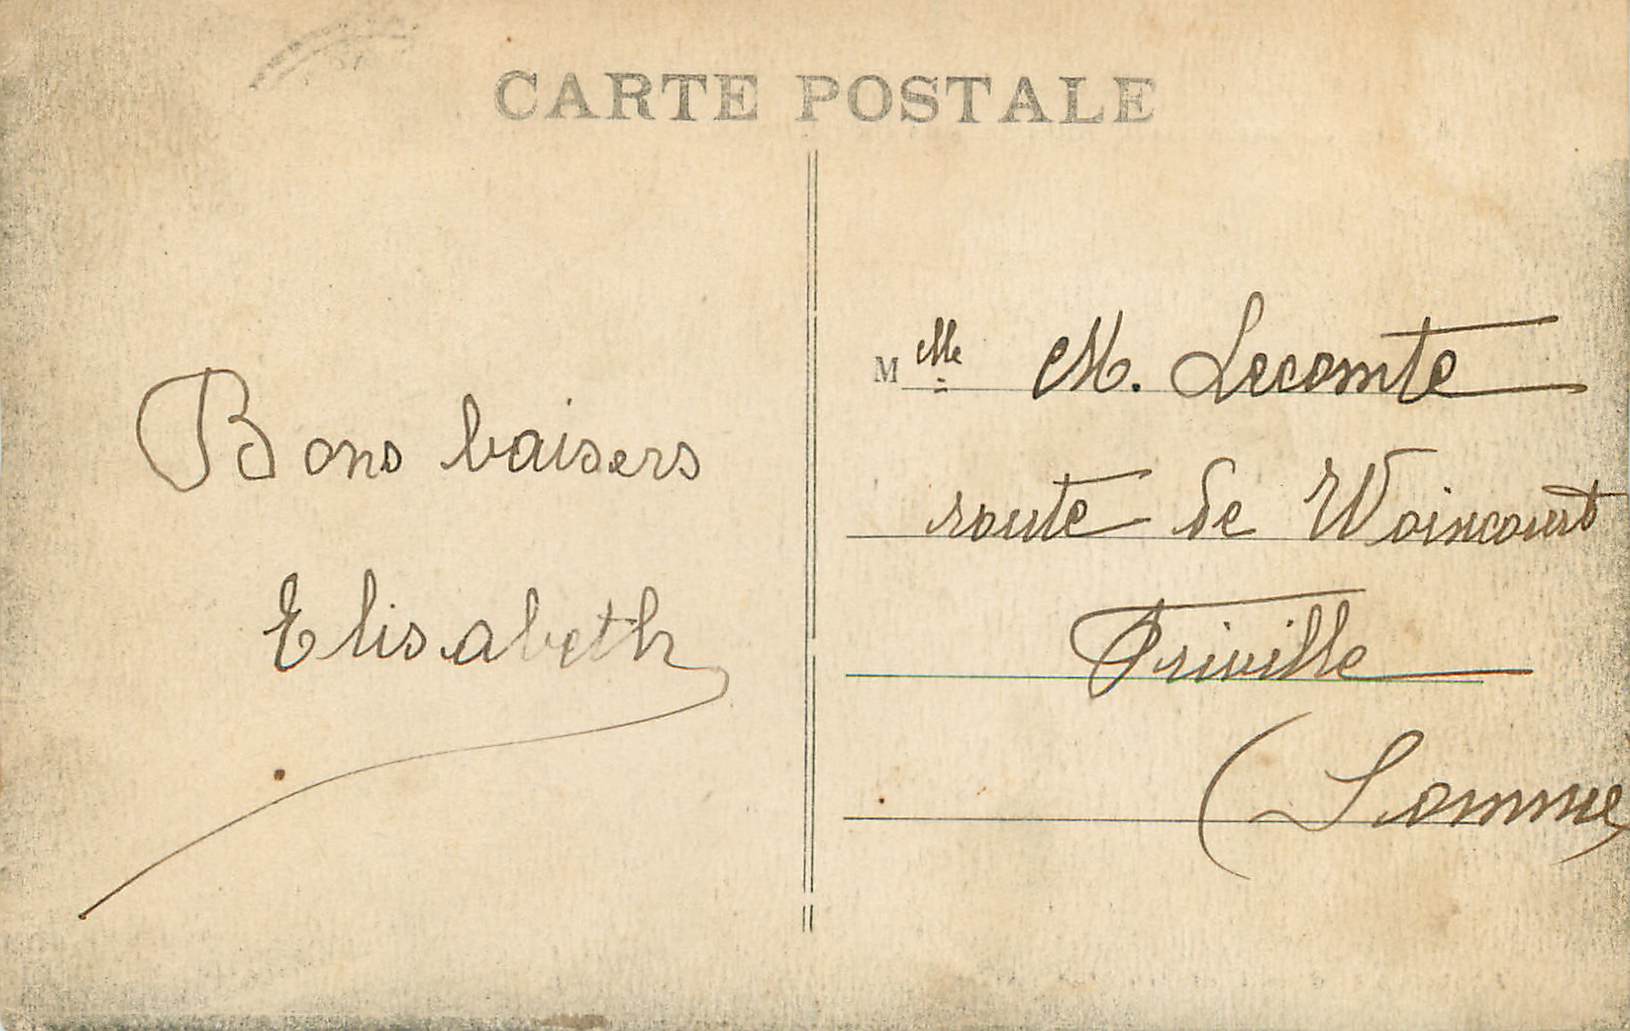 CARTE POSTALE
Bons baisers
Elisabeth
Melle M. Lecomte
route de Woincourt
Friville
(Somme)